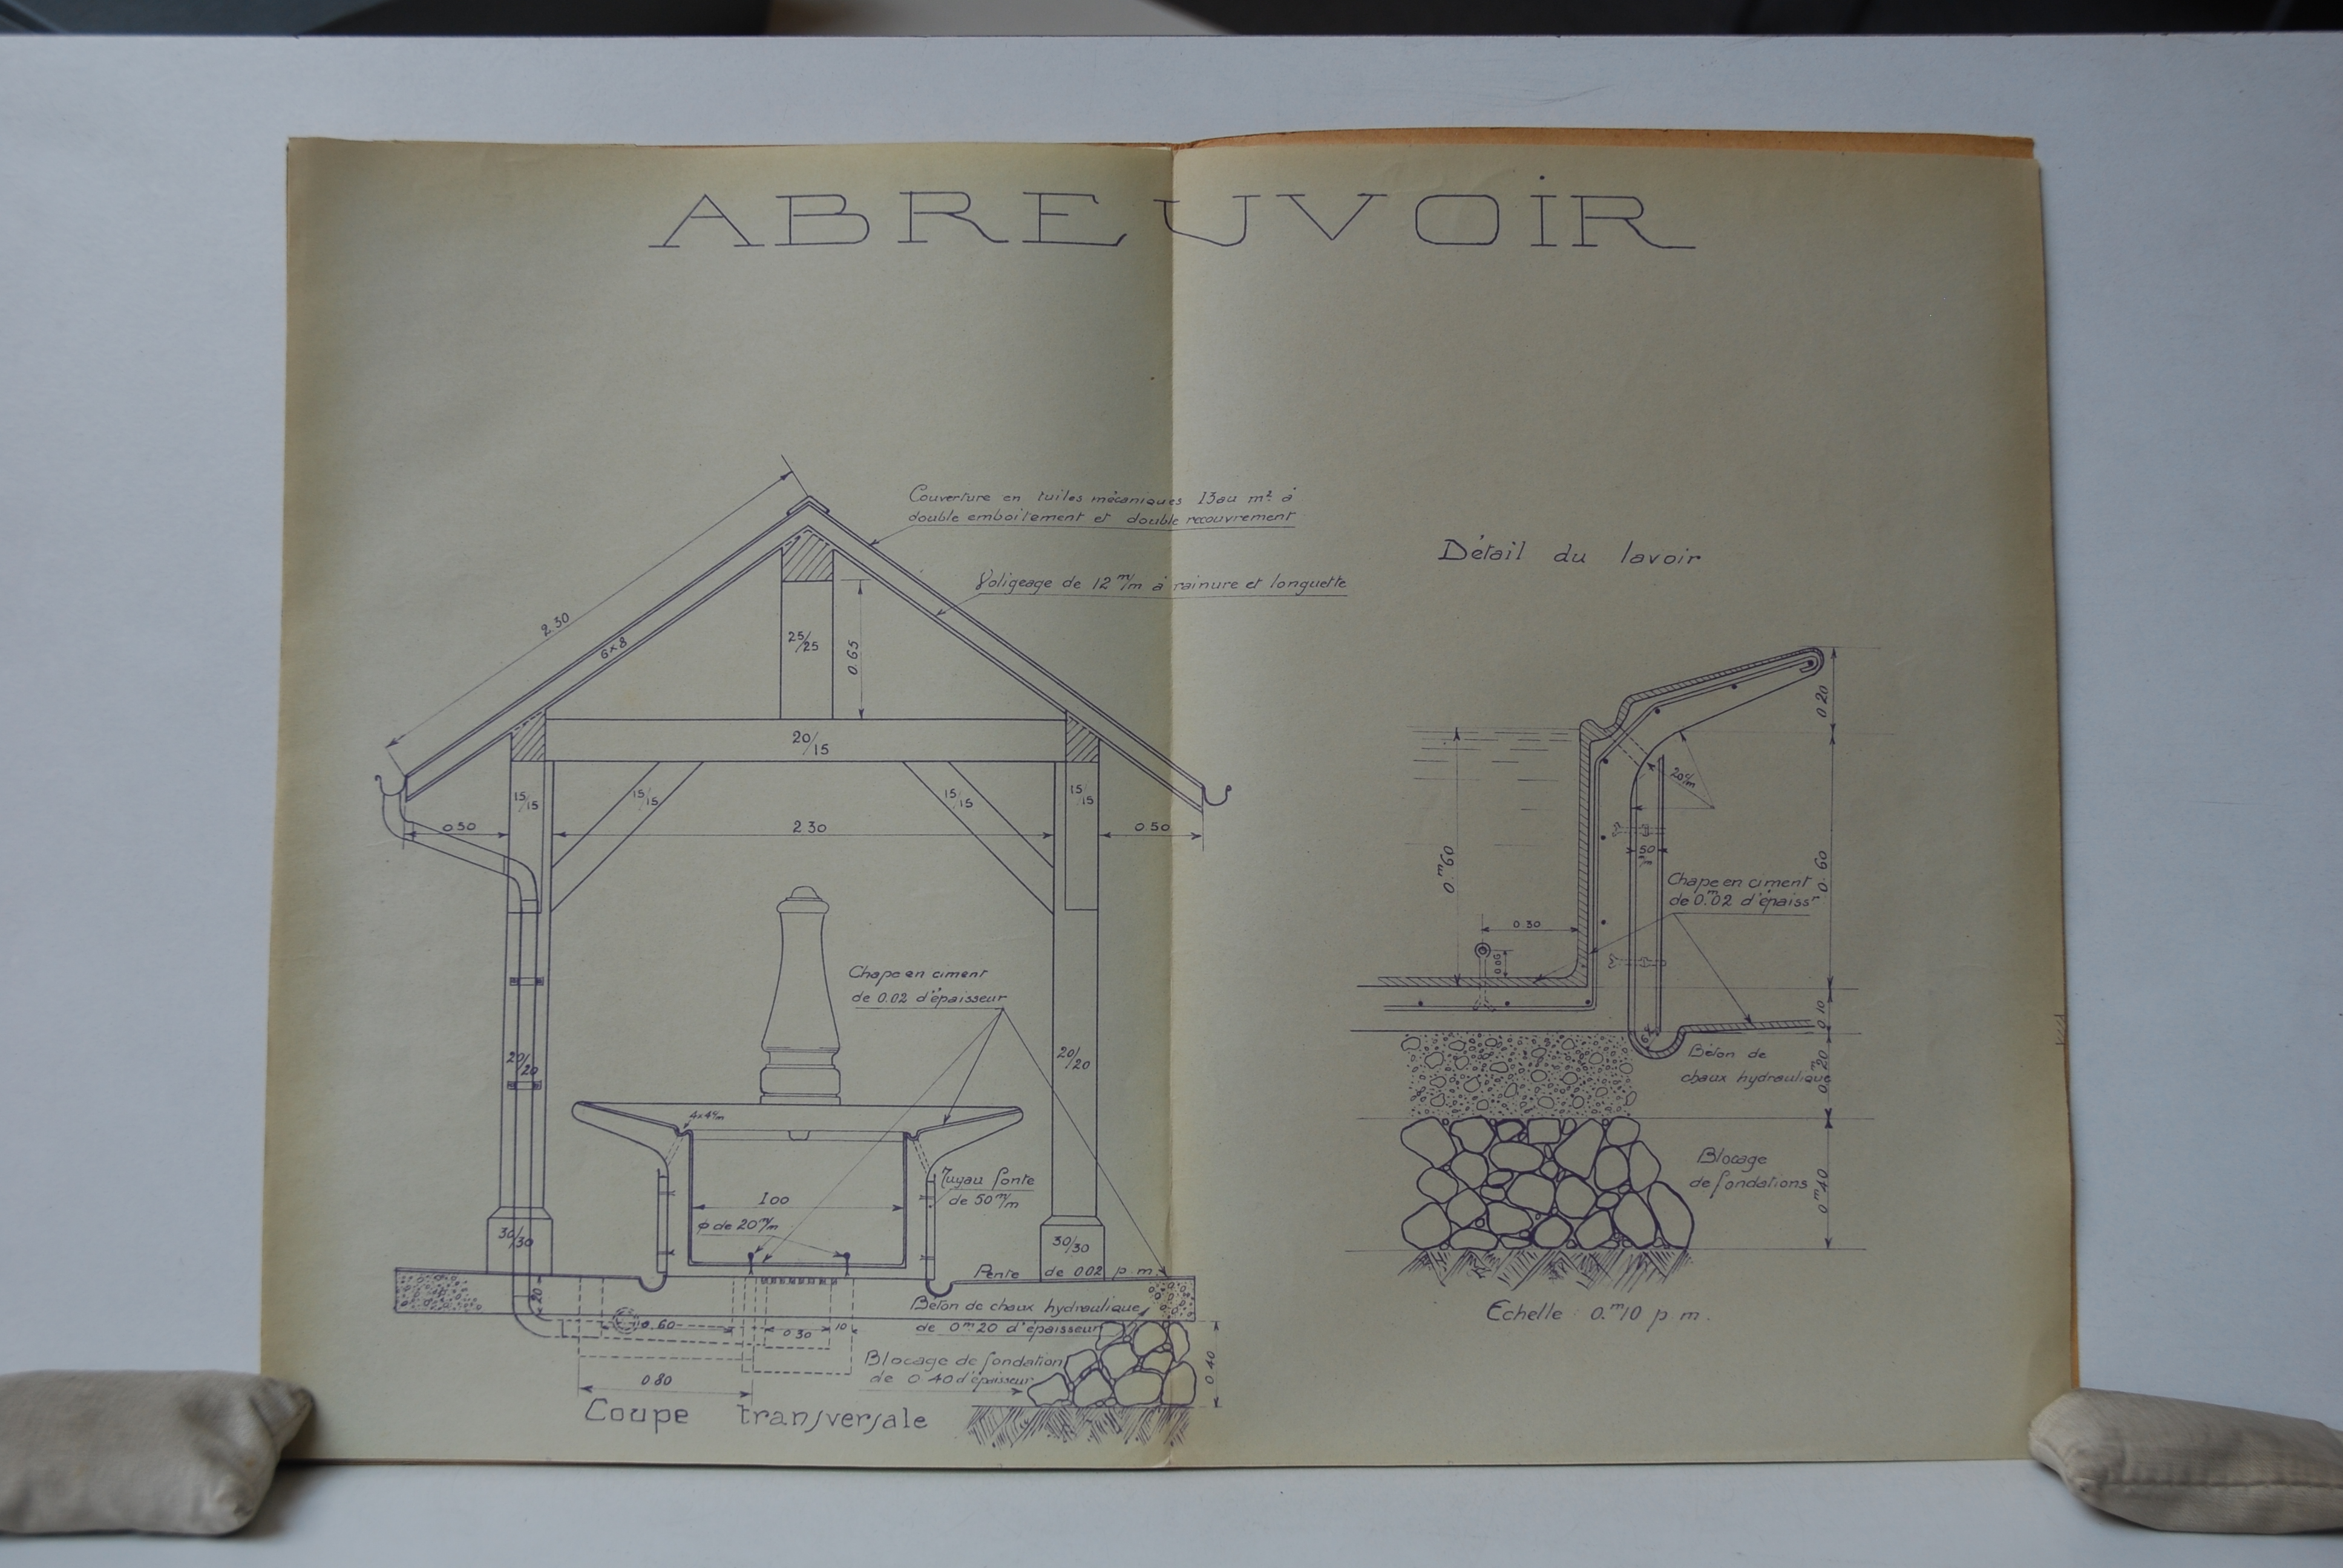 ABREUVOIR
Couverture en tuiles mécaniques 13 au m² à
double emboitement et double recouvrement
Voligeage de 12 m/m à rainure et longuette
2.30
6x8
25/25
0.65
20/15
15/15
15/15
15/15
15/15
0.50
2.30
0.50
Chape en ciment
de 0.02 d'épaisseur
20/20
20/20
4x4 c/m
Tuyau fonte
de 50 m/m
1.00
φ de 20 m/m
30/30
30/30
Pente de 0.02 p. m.
Béton de chaux hydraulique
de 0m20 d'épaisseur
20
0.60
0.30
10
Blocage de fondation
de 0.40 d'épaisseur
0.40
0.80
Coupe transversale
Détail du lavoir
0.20
20 c/m
0.m60
50
0.60
Chape en ciment
de 0.m02 d'épaissr
0.30
0.06
0.10
Béton de
chaux hydraulique
0m20
Blocage
de fondations
0m40
Echelle : 0.m10 p. m.